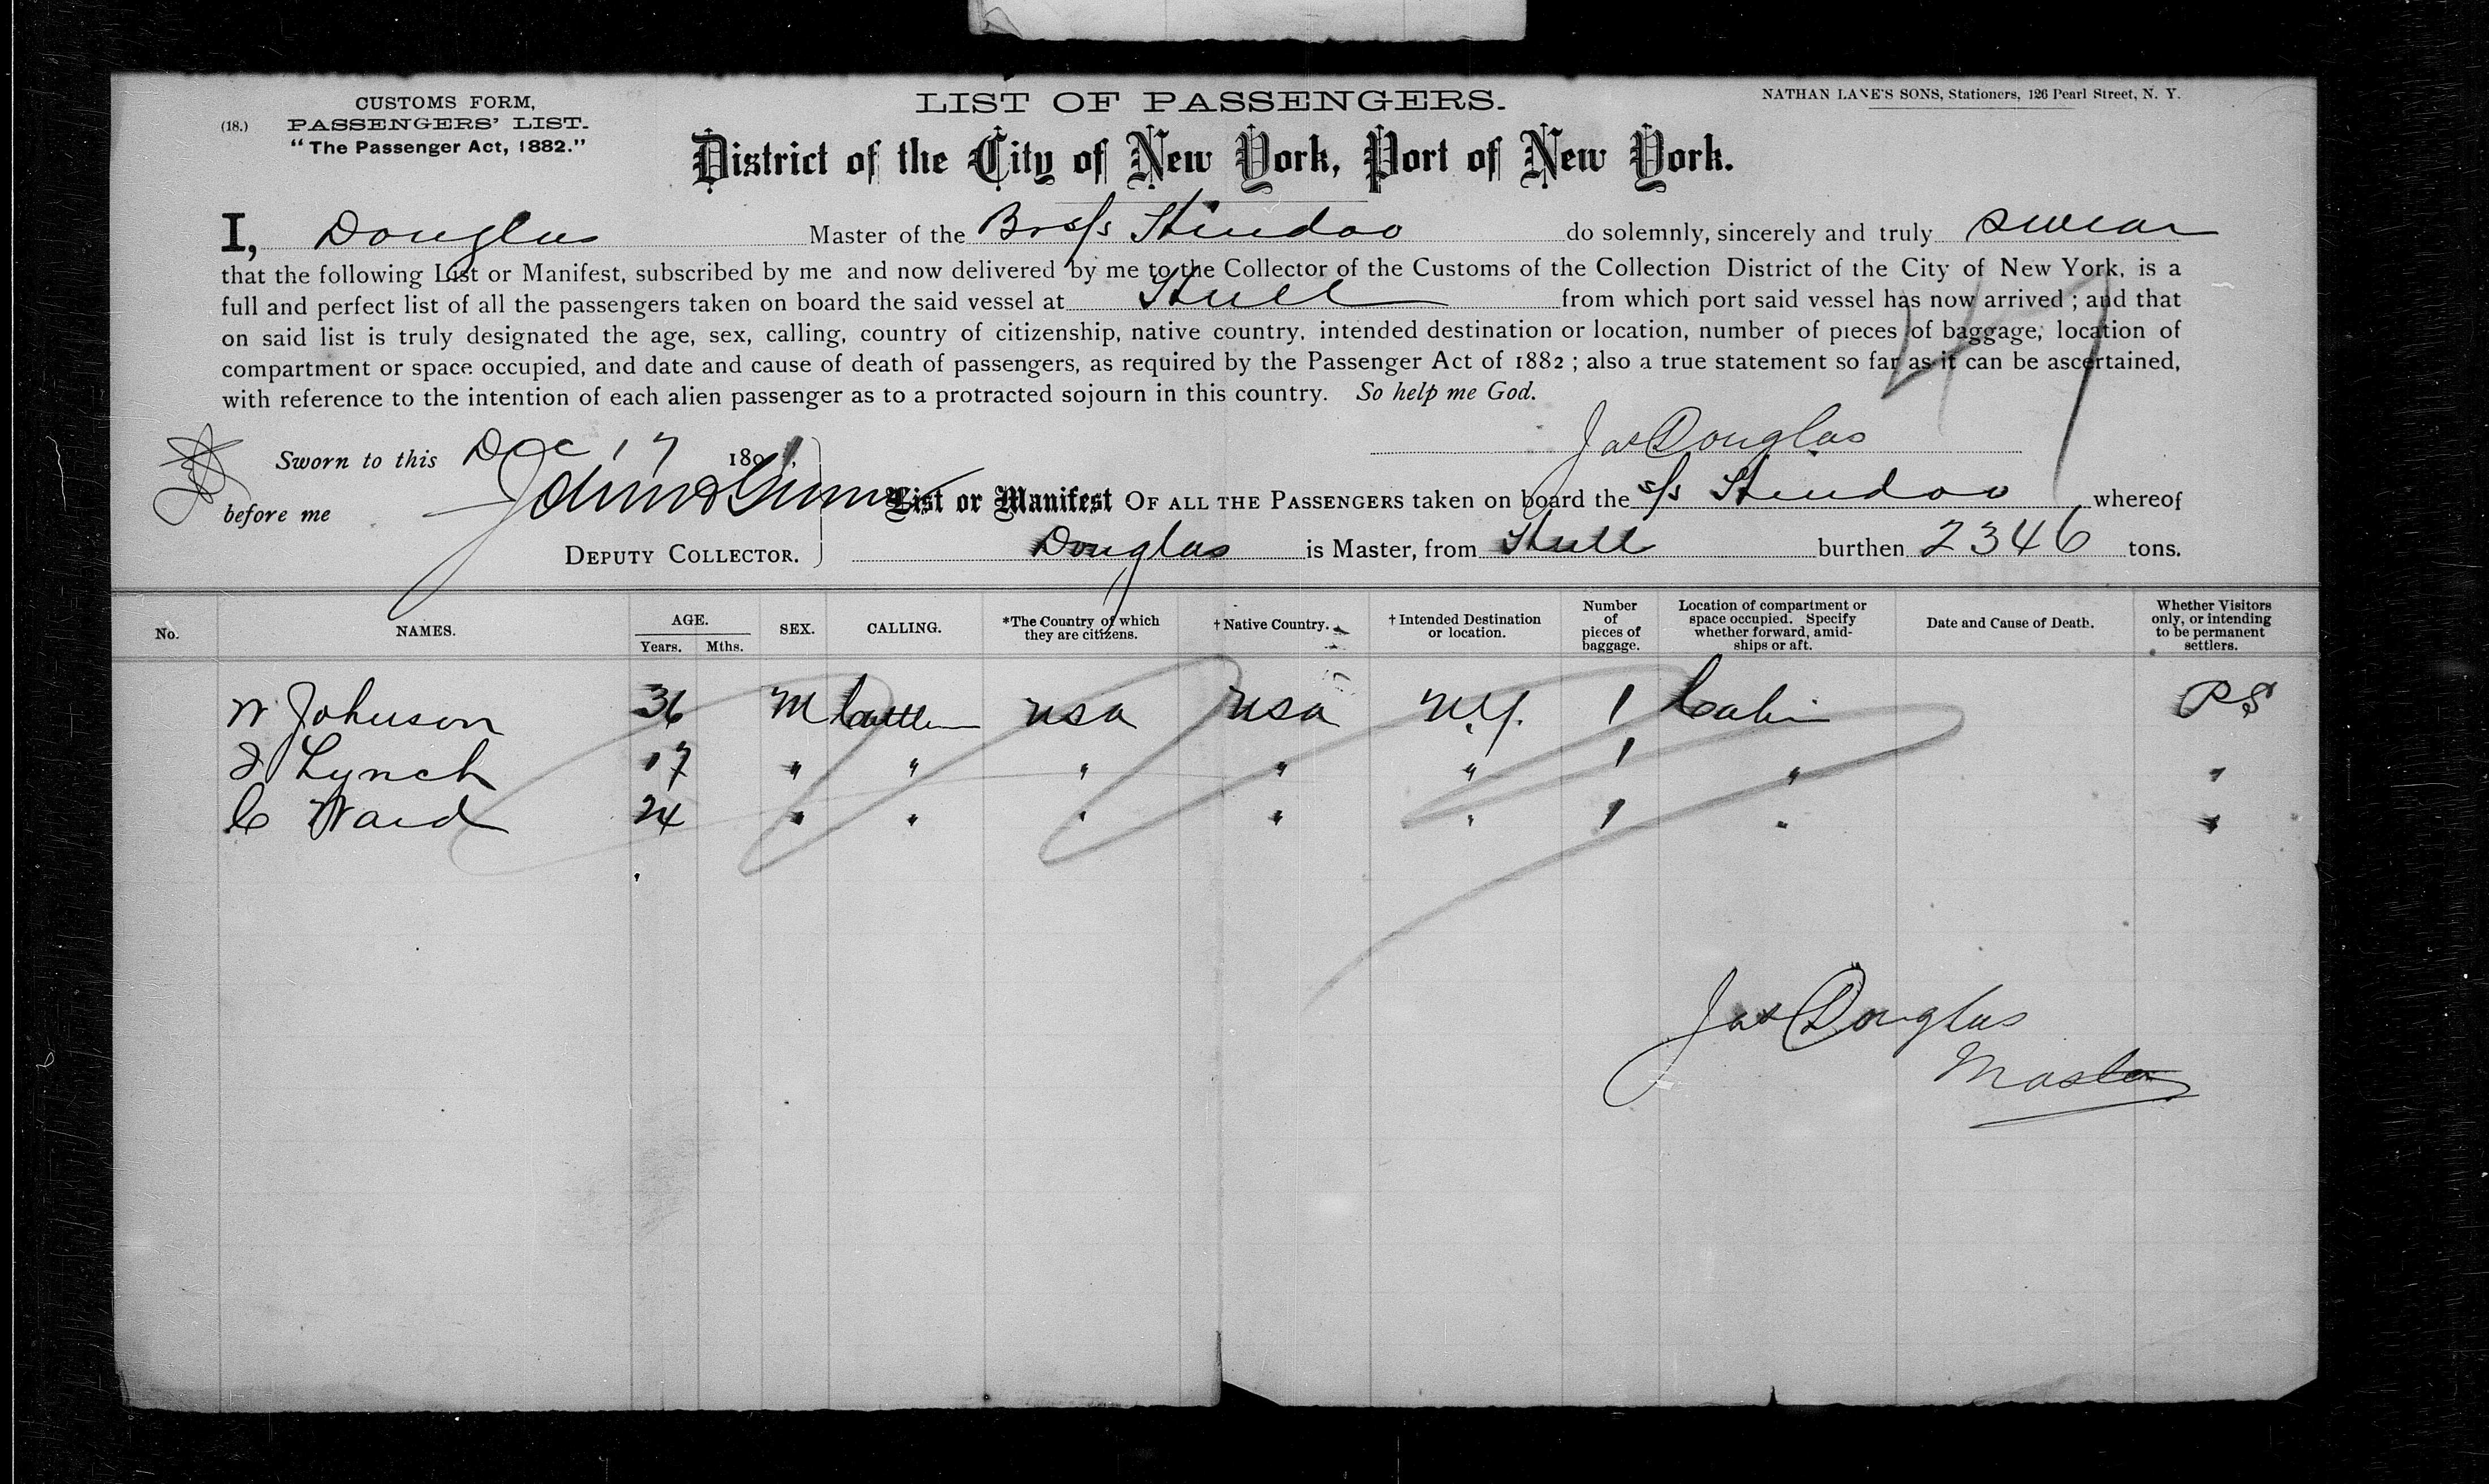 CUSTOMS FORM,
(18.) PASSENGERS' LIST.
"The Passenger Act, 1882."
LIST OF PASSENGERS.
NATHAN LANE'S SONS, Stationers, 126 Pearl Street, N. Y.
District of the City of New York, Port of New York.
I, Douglas Master of the Br s/s Hindoo do solemnly, sincerely and truly swear
that the following List or Manifest, subscribed by me and now delivered by me to the Collector of the Customs of the Collection District of the City of New York, is a
full and perfect list of all the passengers taken on board the said vessel at Hull from which port said vessel has now arrived ; and that
on said list is truly designated the age, sex, calling, country of citizenship, native country, intended destination or location, number of pieces of baggage, location of
compartment or space occupied, and date and cause of death of passengers, as required by the Passenger Act of 1882 ; also a true statement so far as it can be ascertained,
with reference to the intention of each alien passenger as to a protracted sojourn in this country. So help me God.
47
Jas Douglas
Sworn to this Dec 17 1891,
before me
List or Manifest OF ALL THE PASSENGERS taken on board the s/s Hindoo whereof
DEPUTY COLLECTOR. Douglas is Master, from Hull burthen 2346 tons.
No. NAMES. AGE. Years. Mths. SEX. CALLING. *The Country of which they are citizens. † Native Country. † Intended Destination or location. Number of pieces of baggage. Location of compartment or space occupied. Specify whether forward, amidships or aft. Date and Cause of Death. Whether Visitors only, or intending to be permanent settlers.
W Johnson 36 M Cattlem USA USA N.Y. 1 Cabin PS
J Lynch 17 " " " " " 1 " "
C Ward 24 " " " " " 1 " "
Jas Douglas
Master